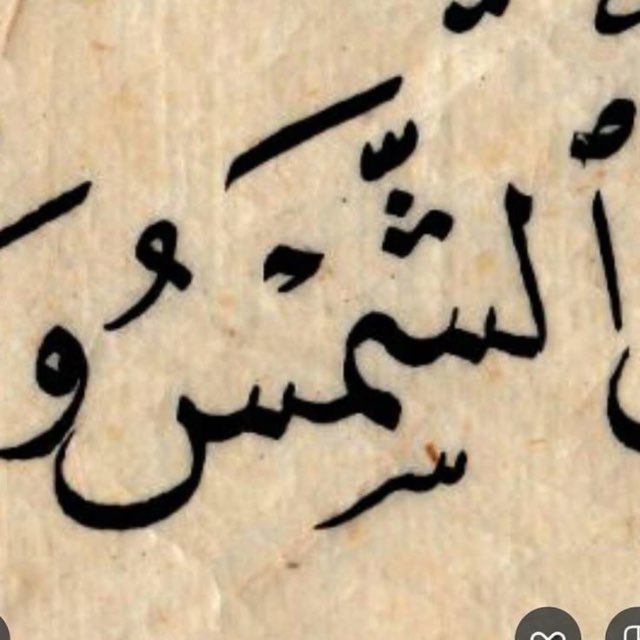 ٱلشَّمْسُ وَ